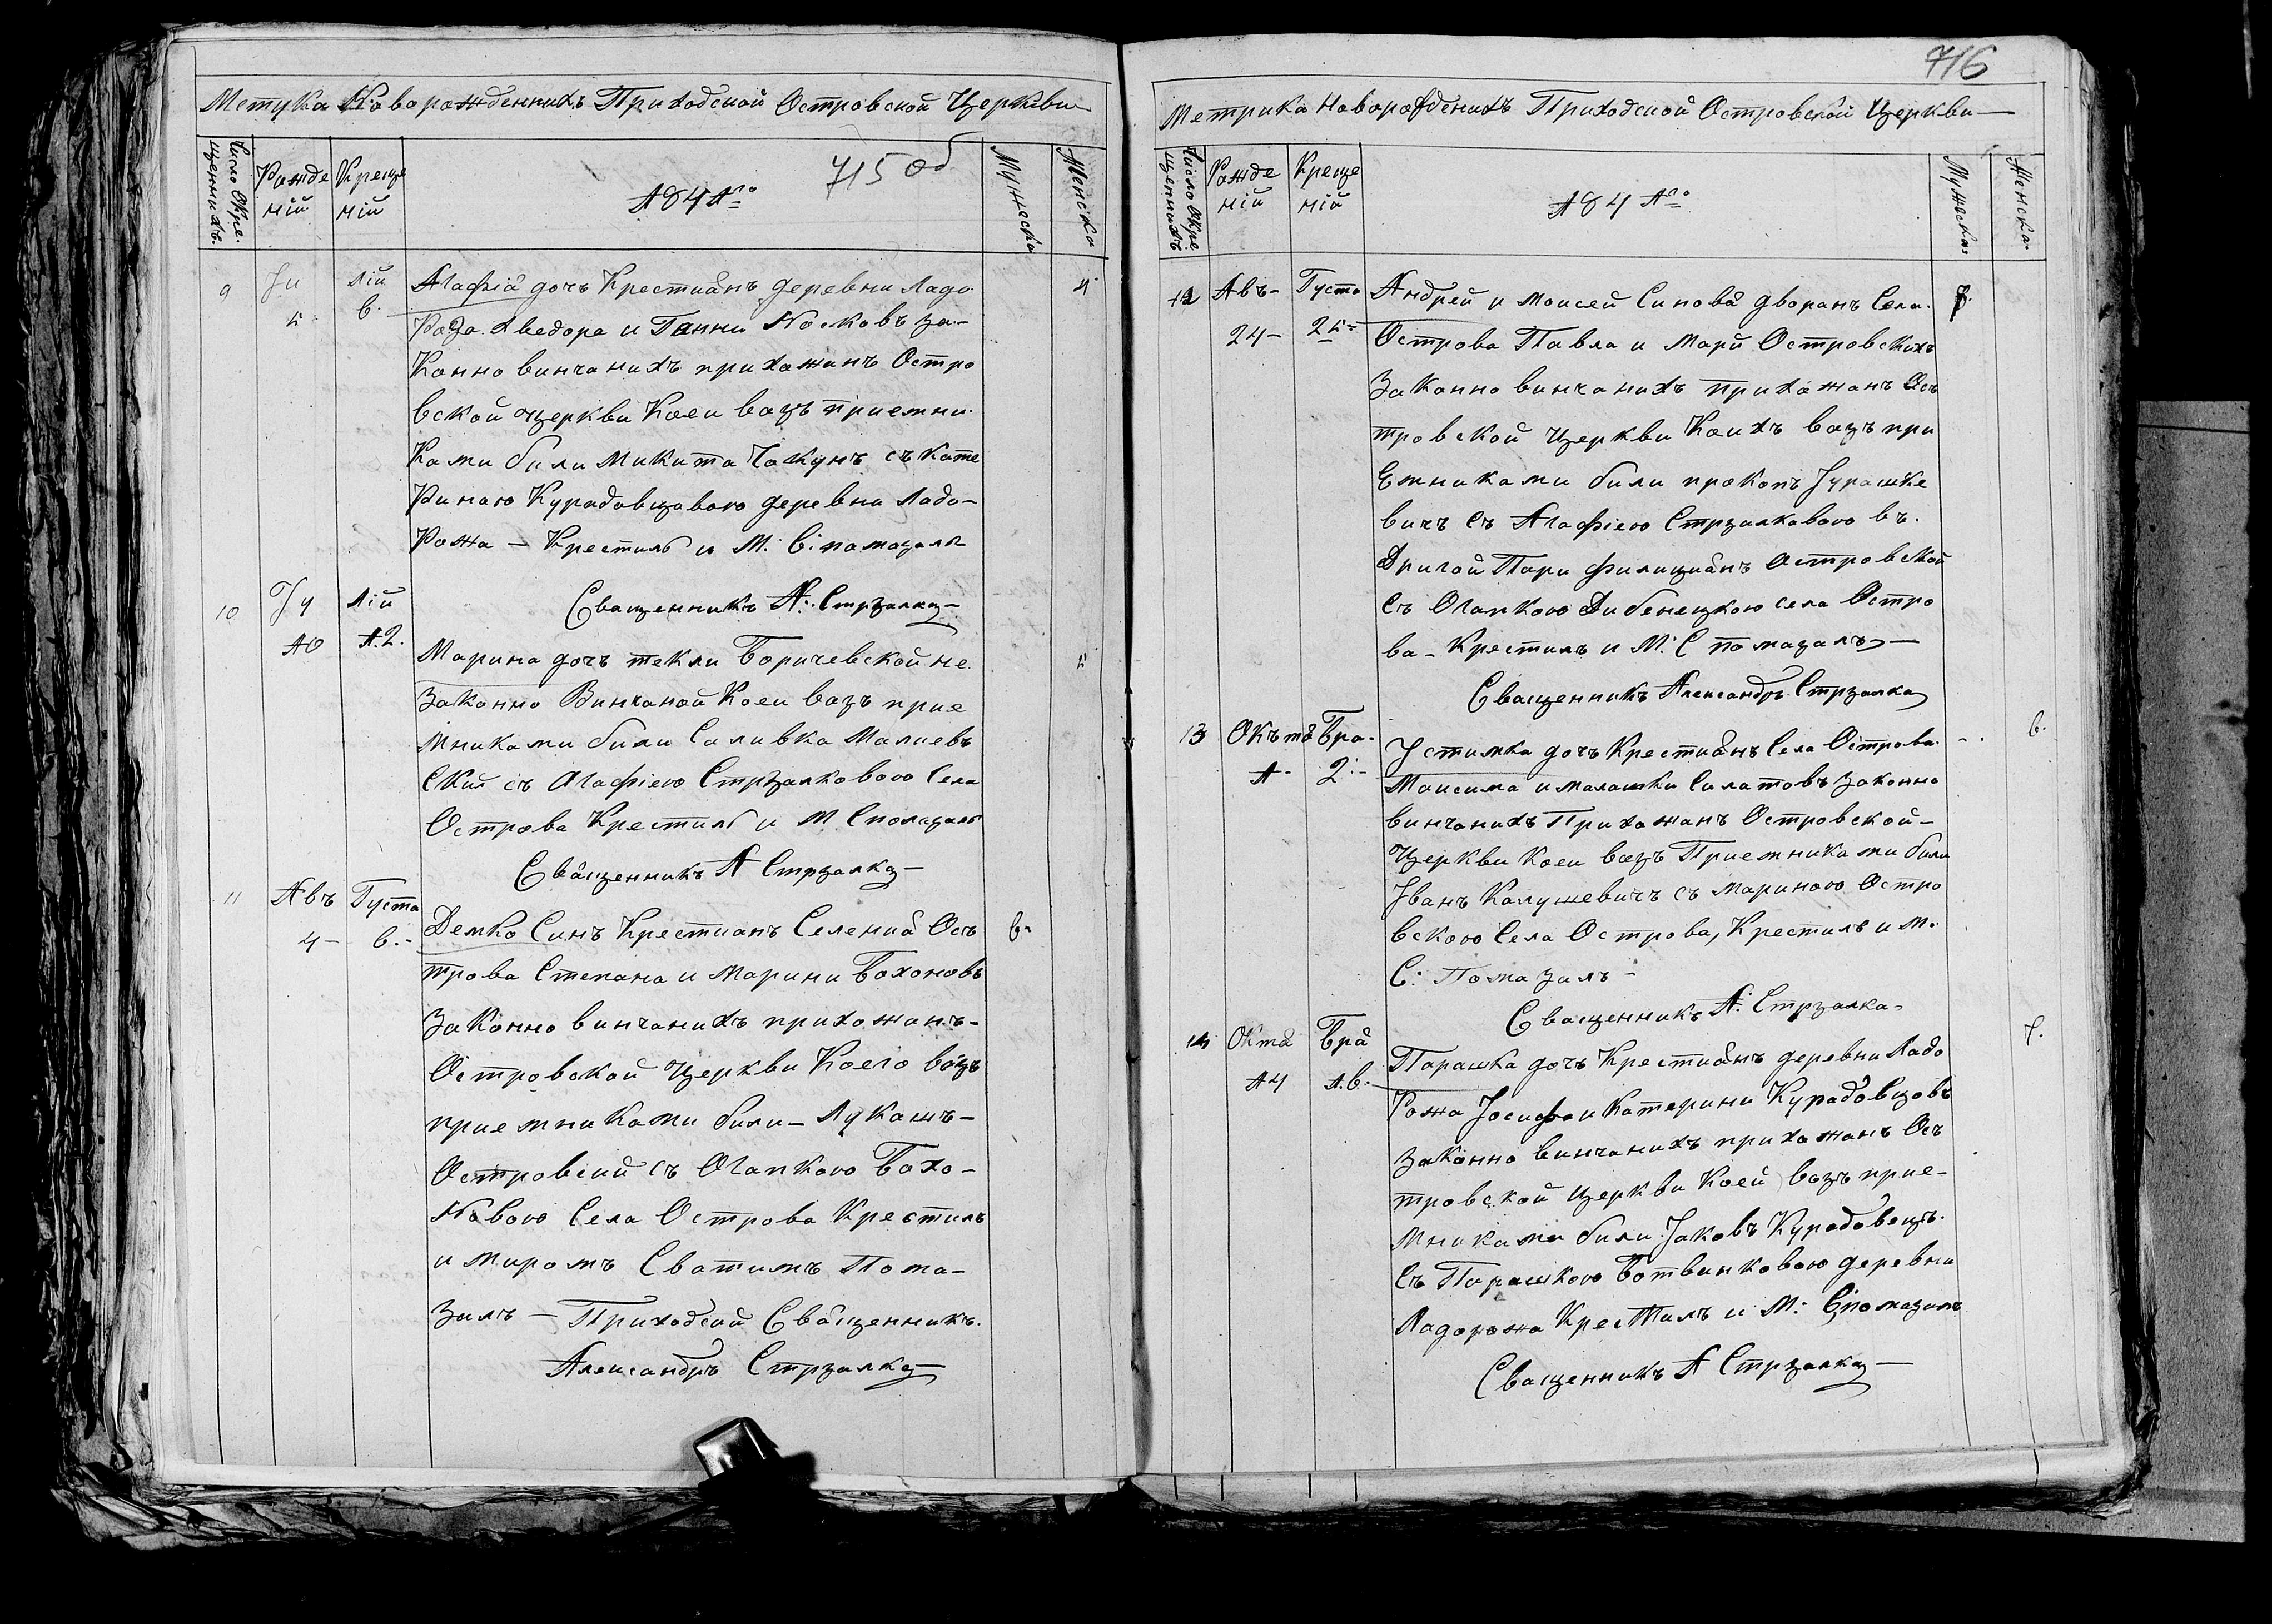 Метука Новорожденнихъ Приходской Островской Церкви
715 об
Число Окре.
щеннихъ.
Рожде
ній
Креще
ній
А84А го
Мужеска
Женска
9
 Іи
лій
в.
Агафіа дочъ Крестианъ деревни Ладо
рожа. Хведора и Ганни Носковъ за-
Конно винчанихъ прихожанъ Остро
вской Церкви Коеи воцъприемни.
Ками били Микита Чакунъ съ Кате
Риною Курадовцовою деревни Ладо-
Рожа - Крестилъ и М: С: помазалъ
Священникъ А: Стрзалка
10
Іу
лій
А0
А2.
Марина дочъ текли Боричевской не.
Законно Винчаной Коеи воцъ прие
мниками били Саливка Малиев
Ский съ Агафіею Стрзалковою Села
Острова Крестилъ и М Спомазалъ
Священникъ А Стрзалка
11
Авъ
Густа
4-
в.-
Демко Синъ Крестианъ Селениа Осъ
в.
трова Степана и Марини Бохоновъ
Законно винчанихъ прихожанъ-
Островской Церкви Коего воцъ
приемниками били - Лукашъ-
Островсий съ Огапкою Бохо-
Новою Села Острова Крестилъ
и Миромъ Сватимъ Пома-
Залъ - Приходсий Священникъ.
Александръ Стрзалка
716
Метрика Новорожденихъ Приходской Островской Церкви
Число Окре
щеннихъ
Рожде
ній
Креще
ній
А84 А го
Мужеска
Женска
12
Авъ-
Густа
24-
Андрей и Моисей Синова дворанъ Села.
Острова Павла и Марй Островскихъ
Законно винчанихъ прихожанъ Осъ
тровской Церкви Коихъ воцъ при
Емниками били прокопъ Іурашке
вичъ Съ Агафіею Стрзалковою въ.
Другой Пари Филициáнъ Островской
Съ Огапкою Дибенецкою села Остро
ва - Крестилъ и М: С помазалъ -
Священникъ Александръ Стрзалка
13
Окъта
Бра.
А-
2:-
Іустимка дочъ Крестианъ Села Острова.
в.
Максима и малашки Салатовъ законно
винчанихъ Прихожанъ Островской-
Церкви Коеи воцъ Приемниками били
Іванъ Калушевичъ съ Мариною Остро
вскою Села Острова, Крестилъ и М:
С: Помазалъ -
Священникъ А: Стрзалка-
14
Окта
Бра
А4
А.в.
Парашка дочъ Крестианъ деревни Ладо
Рожа Іосифа и Катерини Курадовцовъ
законно винчанихъ прихожанъ Осъ
тровской Церкви Коей воцъ прие-
мниками били Іаковъ Курадовецъ.
Съ Парашкою Ботвинковою деревни
Ладорожа КресТилъ и М: С: помазалъ
Священникъ А Стрзалка